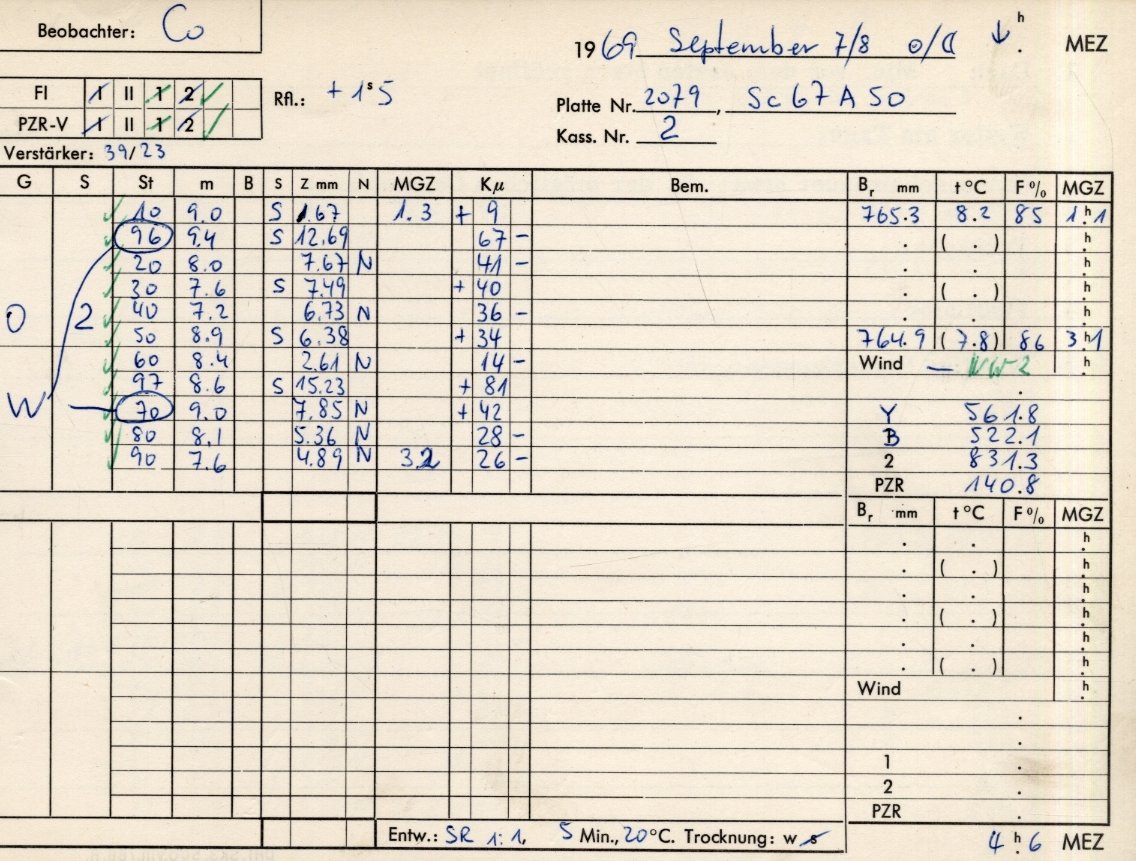 Beobachter: Co
1969 September 7/8 ☉/☾ ↓ h . MEZ
FI I II 1 2
Rfl.: + 1ˢ5
PZR-V I II 1 2
Platte Nr. 2079, Sc 67 A 50
Kass. Nr. 2
Verstärker: 39/23
G S St m B S Z mm N MGZ Kμ Bem. Br mm t °C F % MGZ
10 9.0 S 1.67 1.3 + 9 765.3 8.2 85 1h.1
96 9.4 S 12.69 67 – . ( . ) h.
20 8.0 7.67 N 41 – . . h.
30 7.6 S 7.49 + 40 . ( . ) h.
O 2 40 7.2 6.73 N 36 – . . h.
50 8.9 S 6.38 + 34 764.9 (7.8) 86 3h.1
60 8.4 2.61 N 14 – Wind — NW 2 h.
97 8.6 S 15.23 + 81 .
W 70 9.0 7.85 N + 42 Y 561.8
80 8.1 5.36 N 28 – B 522.1
90 7.6 4.89 N 3.2 26 – 2 831.3
PZR 140.8
Br mm t °C F % MGZ
. . h.
. ( . ) h.
. . h.
. ( . ) h.
. . h.
. ( . ) h.
Wind h.
.
.
1 .
2 .
PZR .
Entw.: SR 1:1, 5 Min., 20 °C. Trocknung: w s
4h.6 MEZ